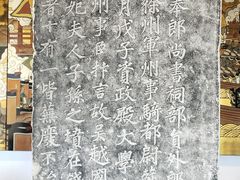 奉郎尚書祠部員外郎
徐州軍州事騎都尉蘇
月戊子資政殿大學
州事臣抃言故吳越國
妃夫人子孫之墳在錢
者十有一皆蕪廢不治